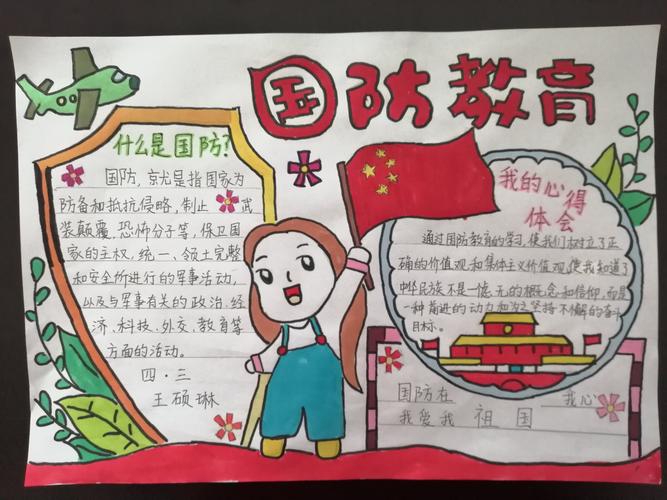 国防教育
什么是国防?
国防，就是指国家为
防备和抵抗侵略，制止武
装颠覆、恐怖分子等，保卫国
家的主权，统一、领土完整
和安全所进行的军事活动，
以及与军事有关的政治、经
济、科技、外交、教育等
方面的活动。
四·三
王硕琳
我的心得
体会
通过国防教育的学习，使我们树立了正
确的价值观和集体主义价值观，使我知道了
中华民族不是一无的概念和信仰，而是
一种前进的动力和为之坚持不懈的奋斗
目标。
国防在 我心
我爱我 祖国